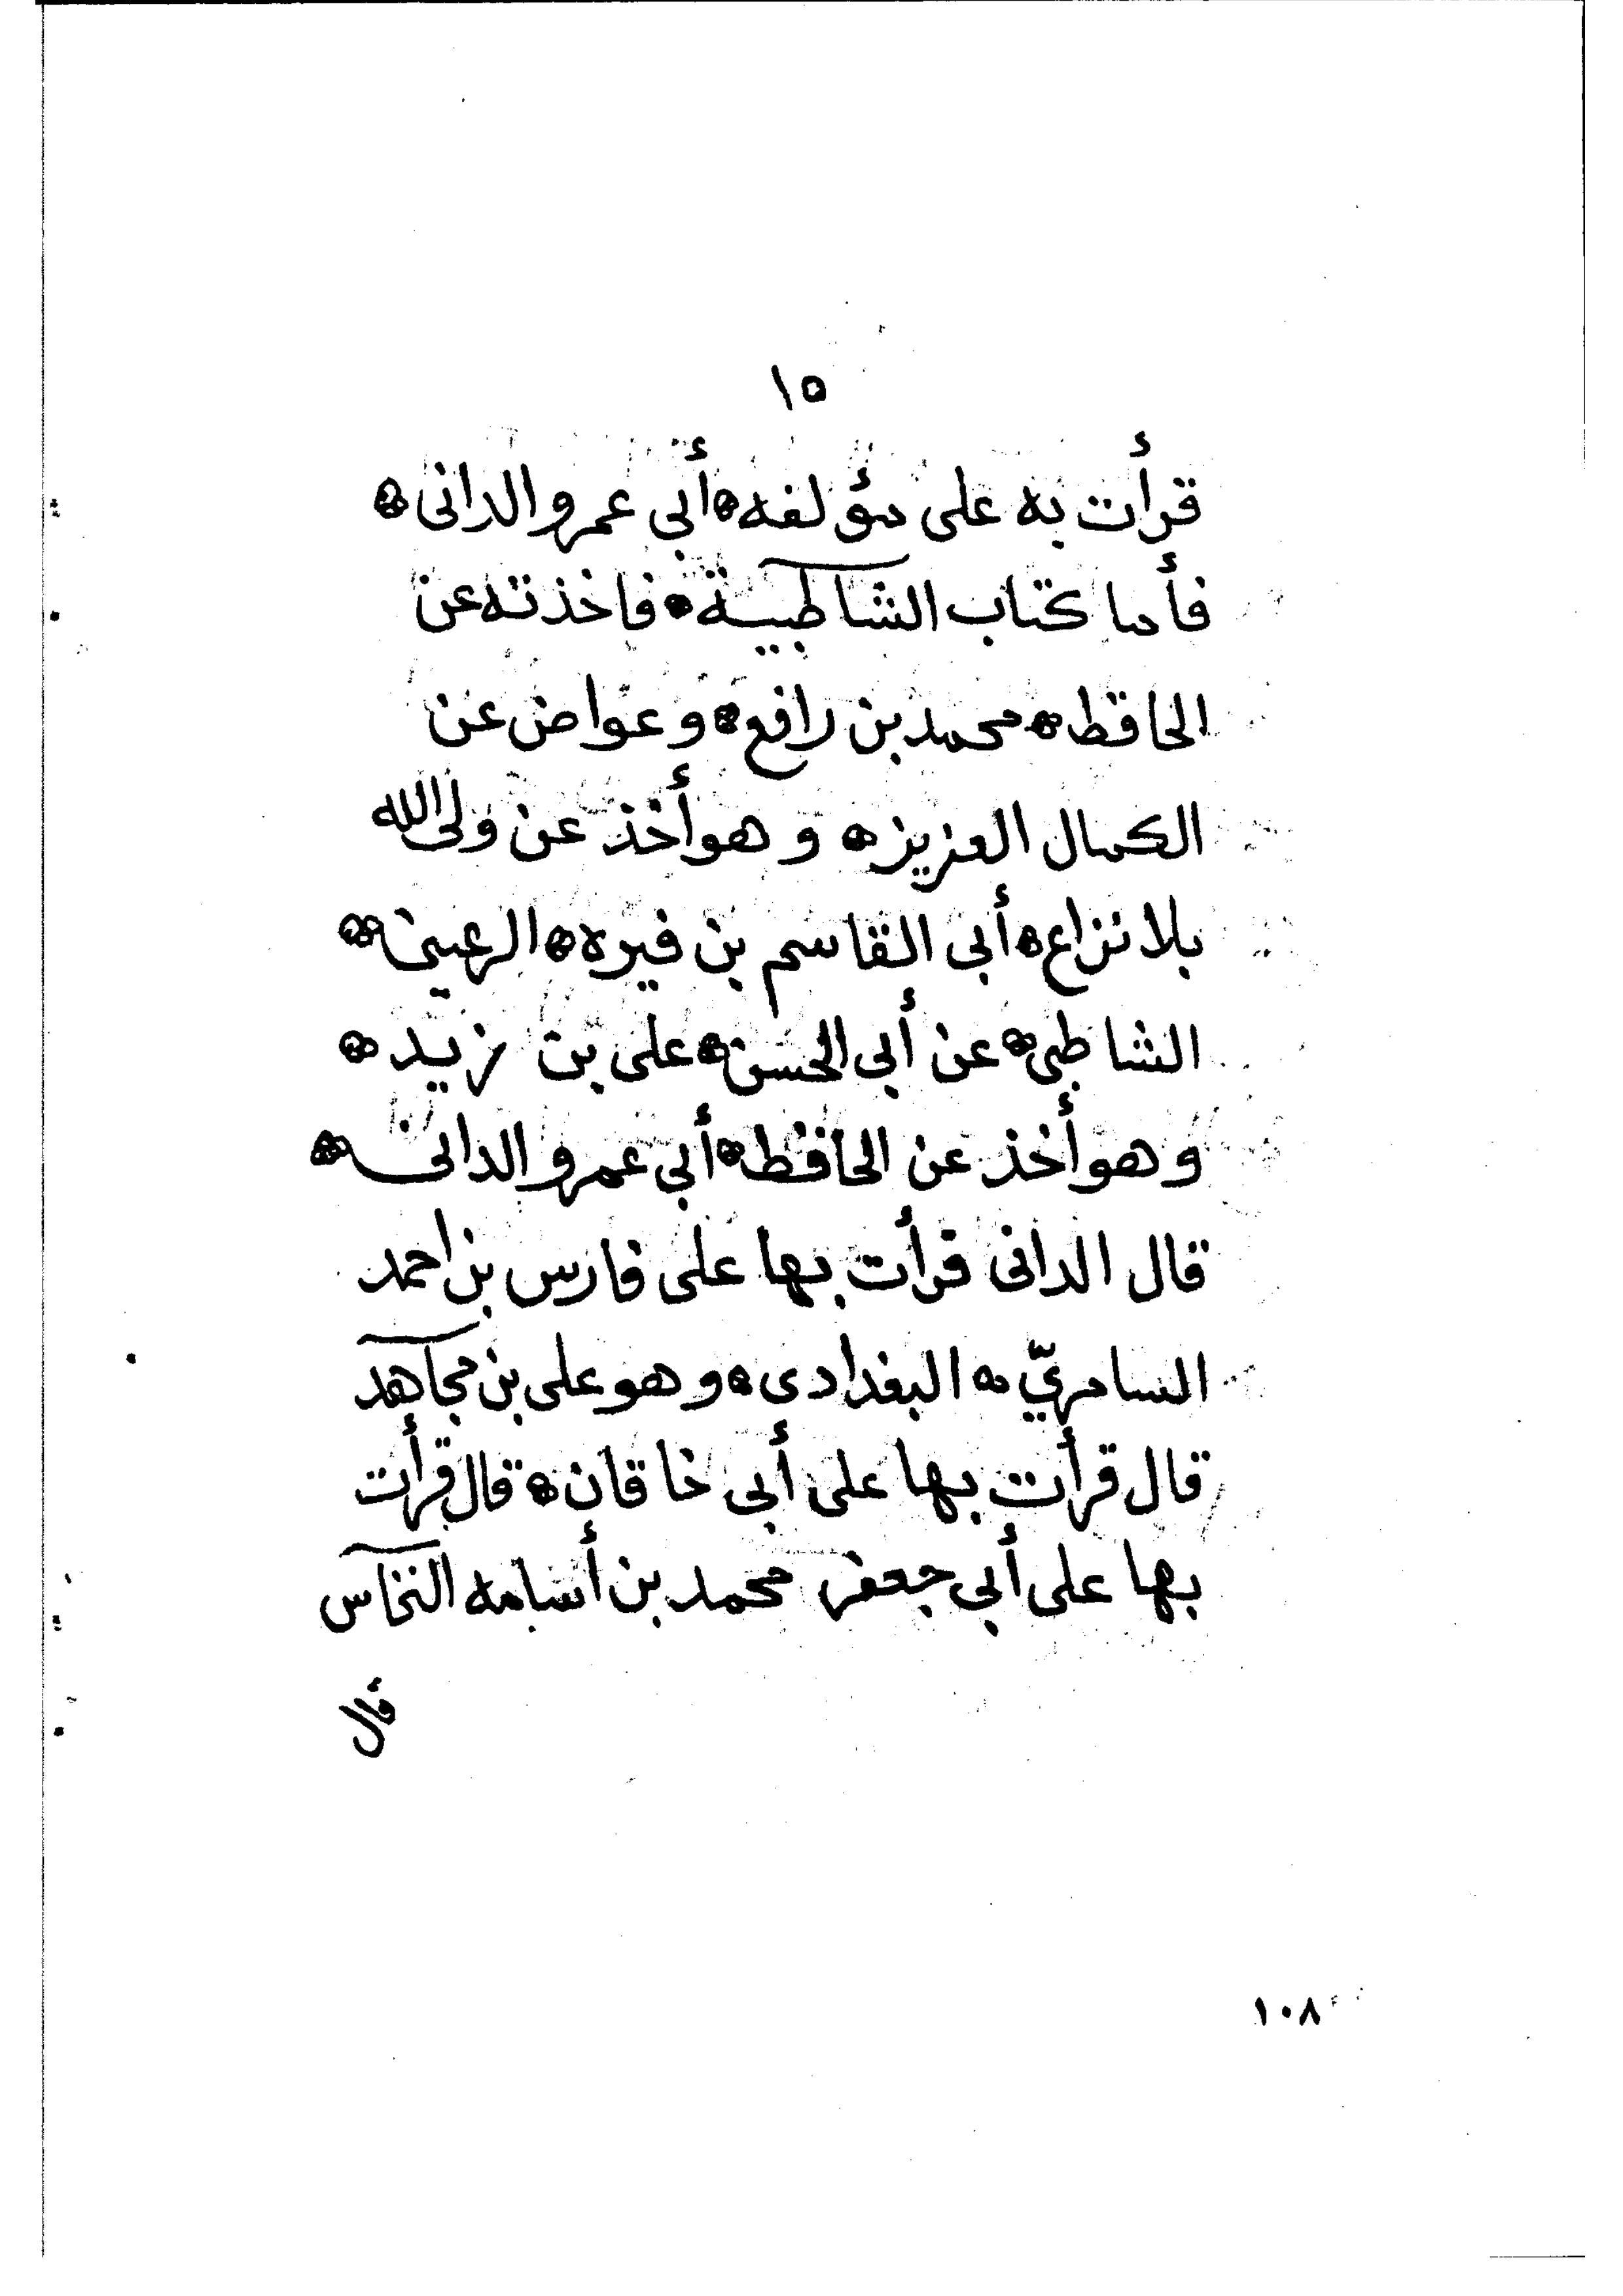 ١٥
قرأت به على مؤلفه ه أبي عمرو الدانى ه
فأما كتاب الشاطبية ه فاخذته عن
الحافظ ه محمد بن رافع ه وعواض عن
الكمال العزيز ه وهو أخذ عن ولى الله
بلا نزاع ه أبى القاسم بن فيره ه الرعينى ه
الشاطبى ه عن أبى الحسن ه على بن زيد ه
وهو أخذ عن الحافظ ه أبى عمرو الدانى ه
قال الدانى قرأت بها على فارس بن احمد
السامريّ ه البغدادى ه وهو على بن مجاهد
قال قرأت بها على أبى خاقان ه قال قرأت
بها على أبى جعفر محمد بن أسامه النخاس
قال
١٠٨